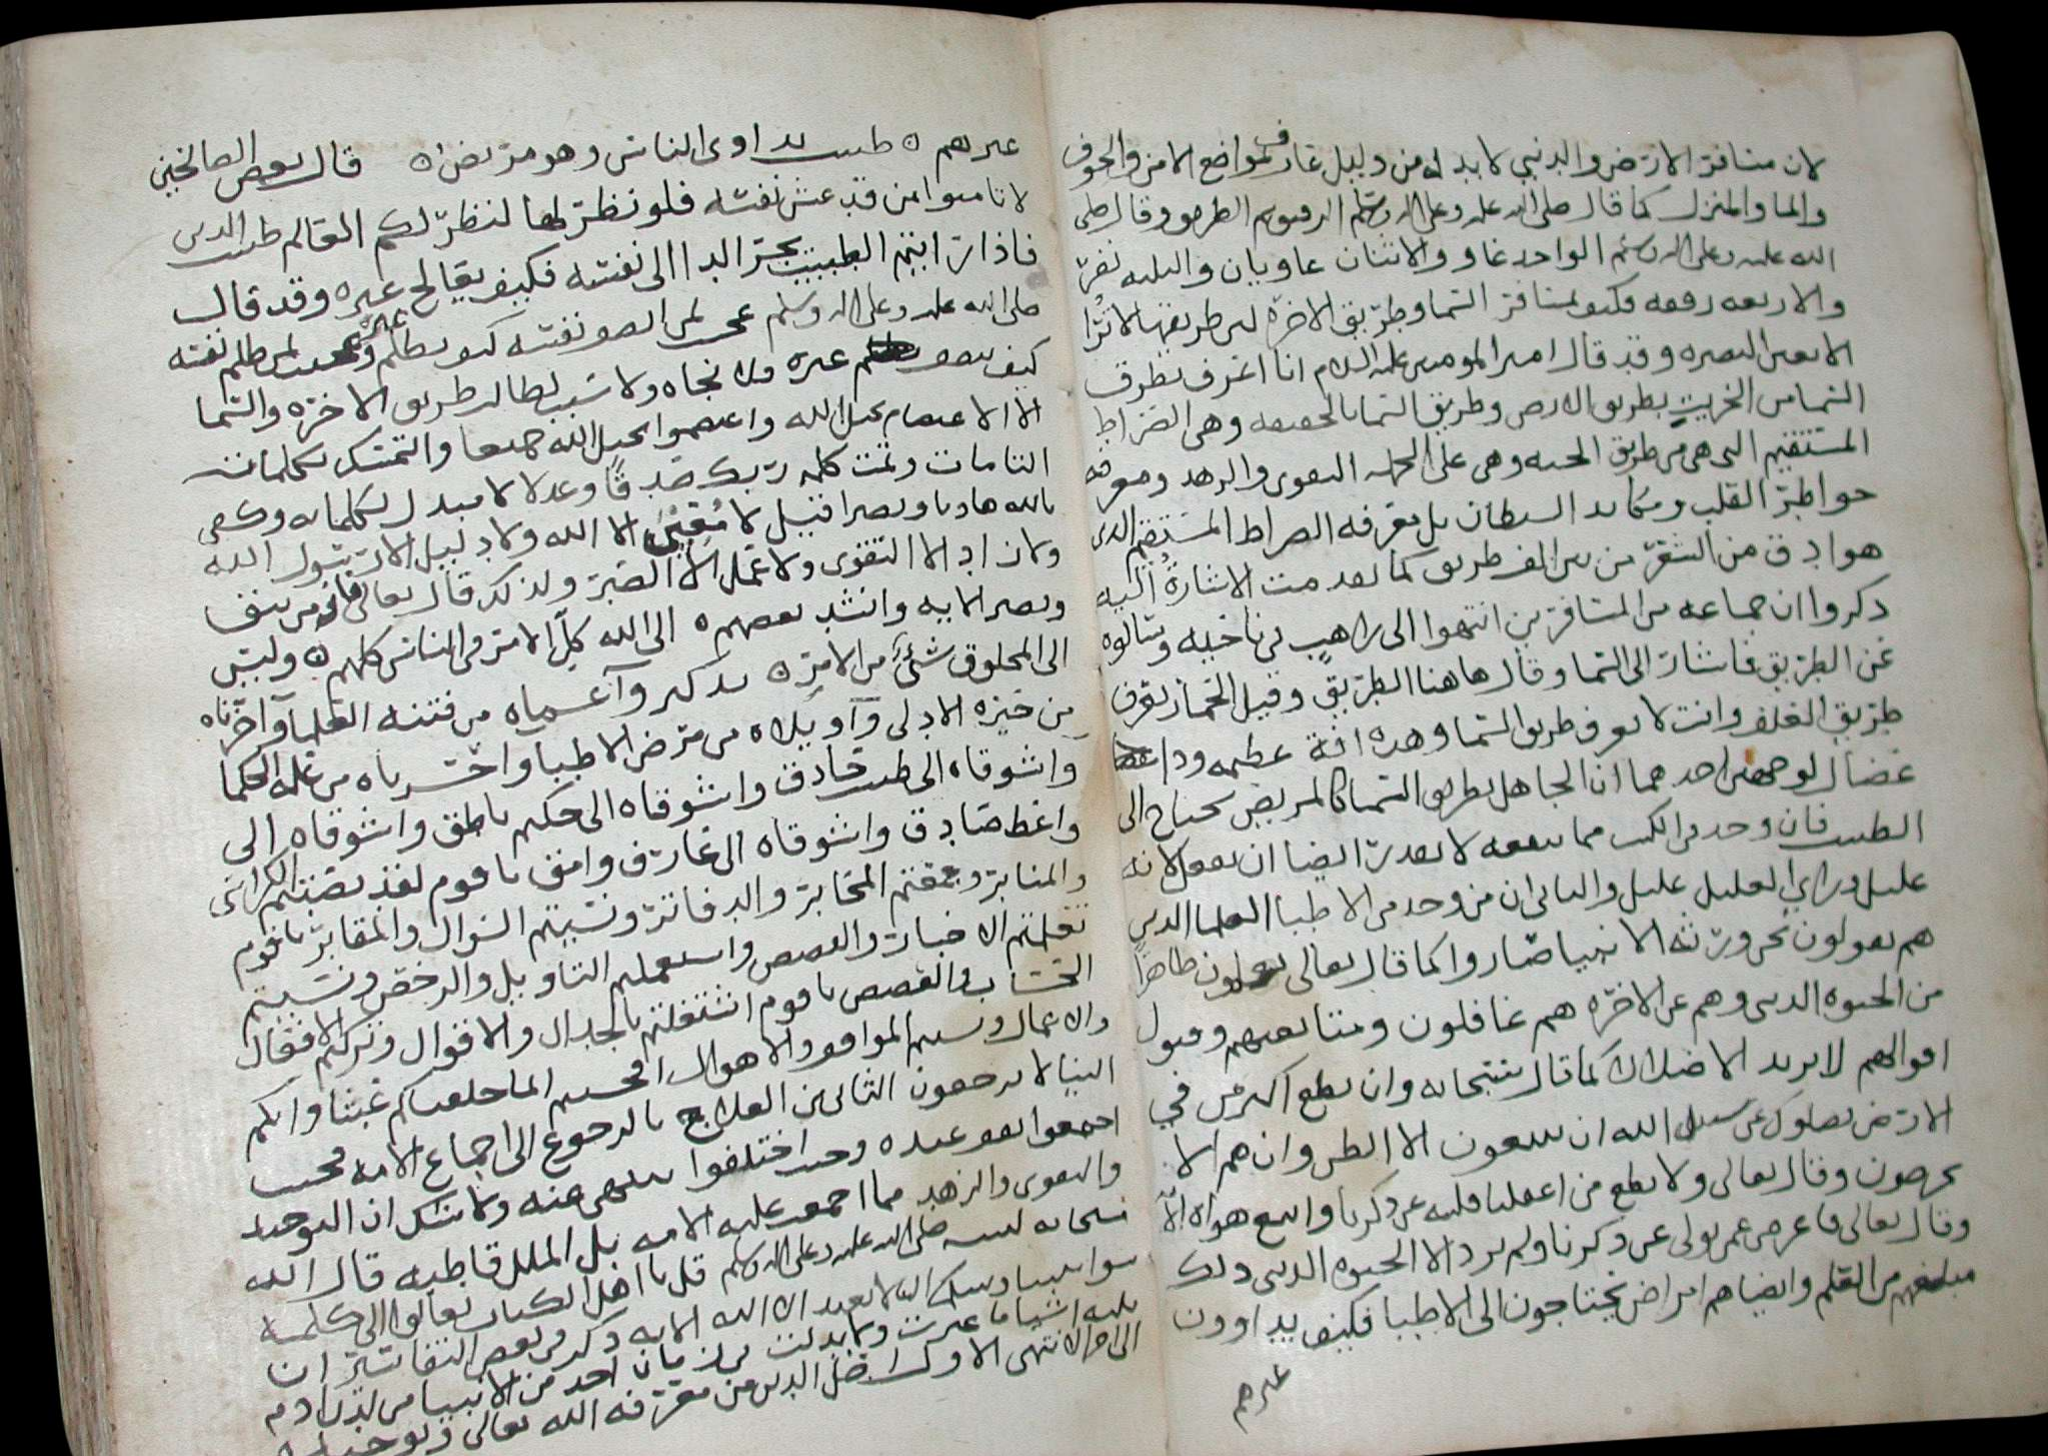 لان مسافر الارض والدنيا لا بد له من دليل عارف بمواضع الامن والخوف
والما والمنزل كما قال صلى الله عليه وعلى اله وسلم الرفيق ثم الطريق وقال صلى
الله عليه وعلى اله وسلم الواحد غاو والاثنان غاويان والثلثه نفر
والاربعه رفقه فكيف بمسافر السما وطريق الاخره ليس طريقها لا ترا
الا بعين البصيره وقد قال امير المومنين عليه السلام انا اعرف بطرق
السما من الخريت بطريق الارض وطريق السما بالحقيقه وهي الصراط
المستقيم التي هي من طريق المحبه وهي على الجمله التقوى والزهد ومعرفه
خواطر القلب ومكايد الشيطان بل معرفه الصراط المستقيم الذي
هو ادق من الشعر من بين الف طريق كما تقدمت الاشارة اليه
ذكروا ان جماعه من المسافرين انتهوا الى راهب في ناحيه وسالوه
عن الطريق فاشار الى السما وقال هاهنا الطريق وقيل الحمار يعرف
طريق العلف وانت لا تعرف طريق السما وهذه افة عظيمه ودا
عضال لوجهين احدهما ان الجاهل بطريق السما كالمريض يحتاج الى
الطبيب فان وجد في الكتب مما ينفعه لا يقدر ايضا ان يفعل لانه
عليل وراي العليل عليل والثاني ان من وجد من الاطبا العلما الذين
هم يقولون نحن ورثة الانبيا صاروا كما قال تعالى يعلمون ظاهرا
من الحيوه الدنيى وهم عن الاخره هم غافلون ومتابعتهم وقبول
اقوالهم لا يزيد الا ضلالا كما قال سبحانه وان تطع اكثر من في
الارض يضلوك عن سبيل الله ان يتبعون الا الظن وان هم الا
يخرصون وقال تعالى ولا تطع من اغفلنا قلبه عن ذكرنا واتبع هواه الآ
وقال تعالى فاعرض عمن تولى عن ذكرنا ولم يرد الا الحيوه الدنيى ذلك
مبلغهم من العلم وايضا هم امراض يحتاجون الى الاطبا فكيف يداوون
غيرهم
غيرهم ه طبيب يداوي الناس وهو مريض ه قال بعض الصالحين
لا تامنوا من قد غش نفسه فلو نظر لها لنظر لكم العالم طبيب الدين
فاذا رايتم الطبيب يجر الدا الى نفسه فكيف يعالج غيره وقد قال
صلى الله عليه وعلى اله وسلم عجب لمن نفسه كيف غيره وعجبت لمن ظلم نفسه
كيف ينصف غيره ولا نجاه ولا سبب لطالب طريق الاخره والسما
الا الاعتصام بحبل الله واعتصموا بحبل الله جميعا والتمسك بكلماته
التامات وتمت كلمه ربك صدقا وعدلا لا مبدل لكلماته وكفى
بالله هاديا ونصيرا فقيل لا مُعِيْنَ الا الله ولا دليل الا رسول الله
ولا زاد الا التقوى ولا عمل الا الصبر ولذلك قال تعالى فانه من يتق
ويصبر الايه وانشد بعضهم ه الى الله كل الامر في الناس كلهم ه وليس
الى المخلوق شيء من الامر ه وآ من فتنه العلما وآحرباه
من حيره الادلى وآويلاه من مرض الاطبا واحسرتاه من غلمه الحكما
واشوقاه الى طبيب حاذق واشوقاه الى حكيم ناطق واشوقاه الى
واعظ صادق واشوقاه الى عارف وامق يا قوم لقد نصبتم الكراسي
والمنابر وجمعتم المحابر والدفاتر ونسيتم السوال والمقابر يا قوم
نقلتم الاخبار والقصص واستعملتم التاويل والرخص ونسيتم
الحساب والقصص يا قوم اشتغلتم بالجدال والاقوال وتركتم الافعال
والاعمال ونسيتم المواقف والاهوال افحسبتم انما خلقناكم عبثا وانكم
الينا لا ترجعون الثاني من العلاج بالرجوع الى اجماع الامه فحيث
اجمعوا وحيث اختلفوا عنه ولا شك ان التوحيد
والتقوى والزهد مما اجمعت عليه الامه بل الملل قاطبه قال الله
سبحانه لنبيه صلى الله عليه وعلى اله وسلم قل يا اهل الكتاب تعالوا الى كلمة
سوا بيننا وبينكم الا نعبد الا الله الايه ذكر في بعض التفاسير ان
ثلثه اشيا ما غيرت ولا بدلت في زمان احد من الانبيا من لدن ادم
الى الاول اصل الدين من معرفه الله تعالى وتوحيده